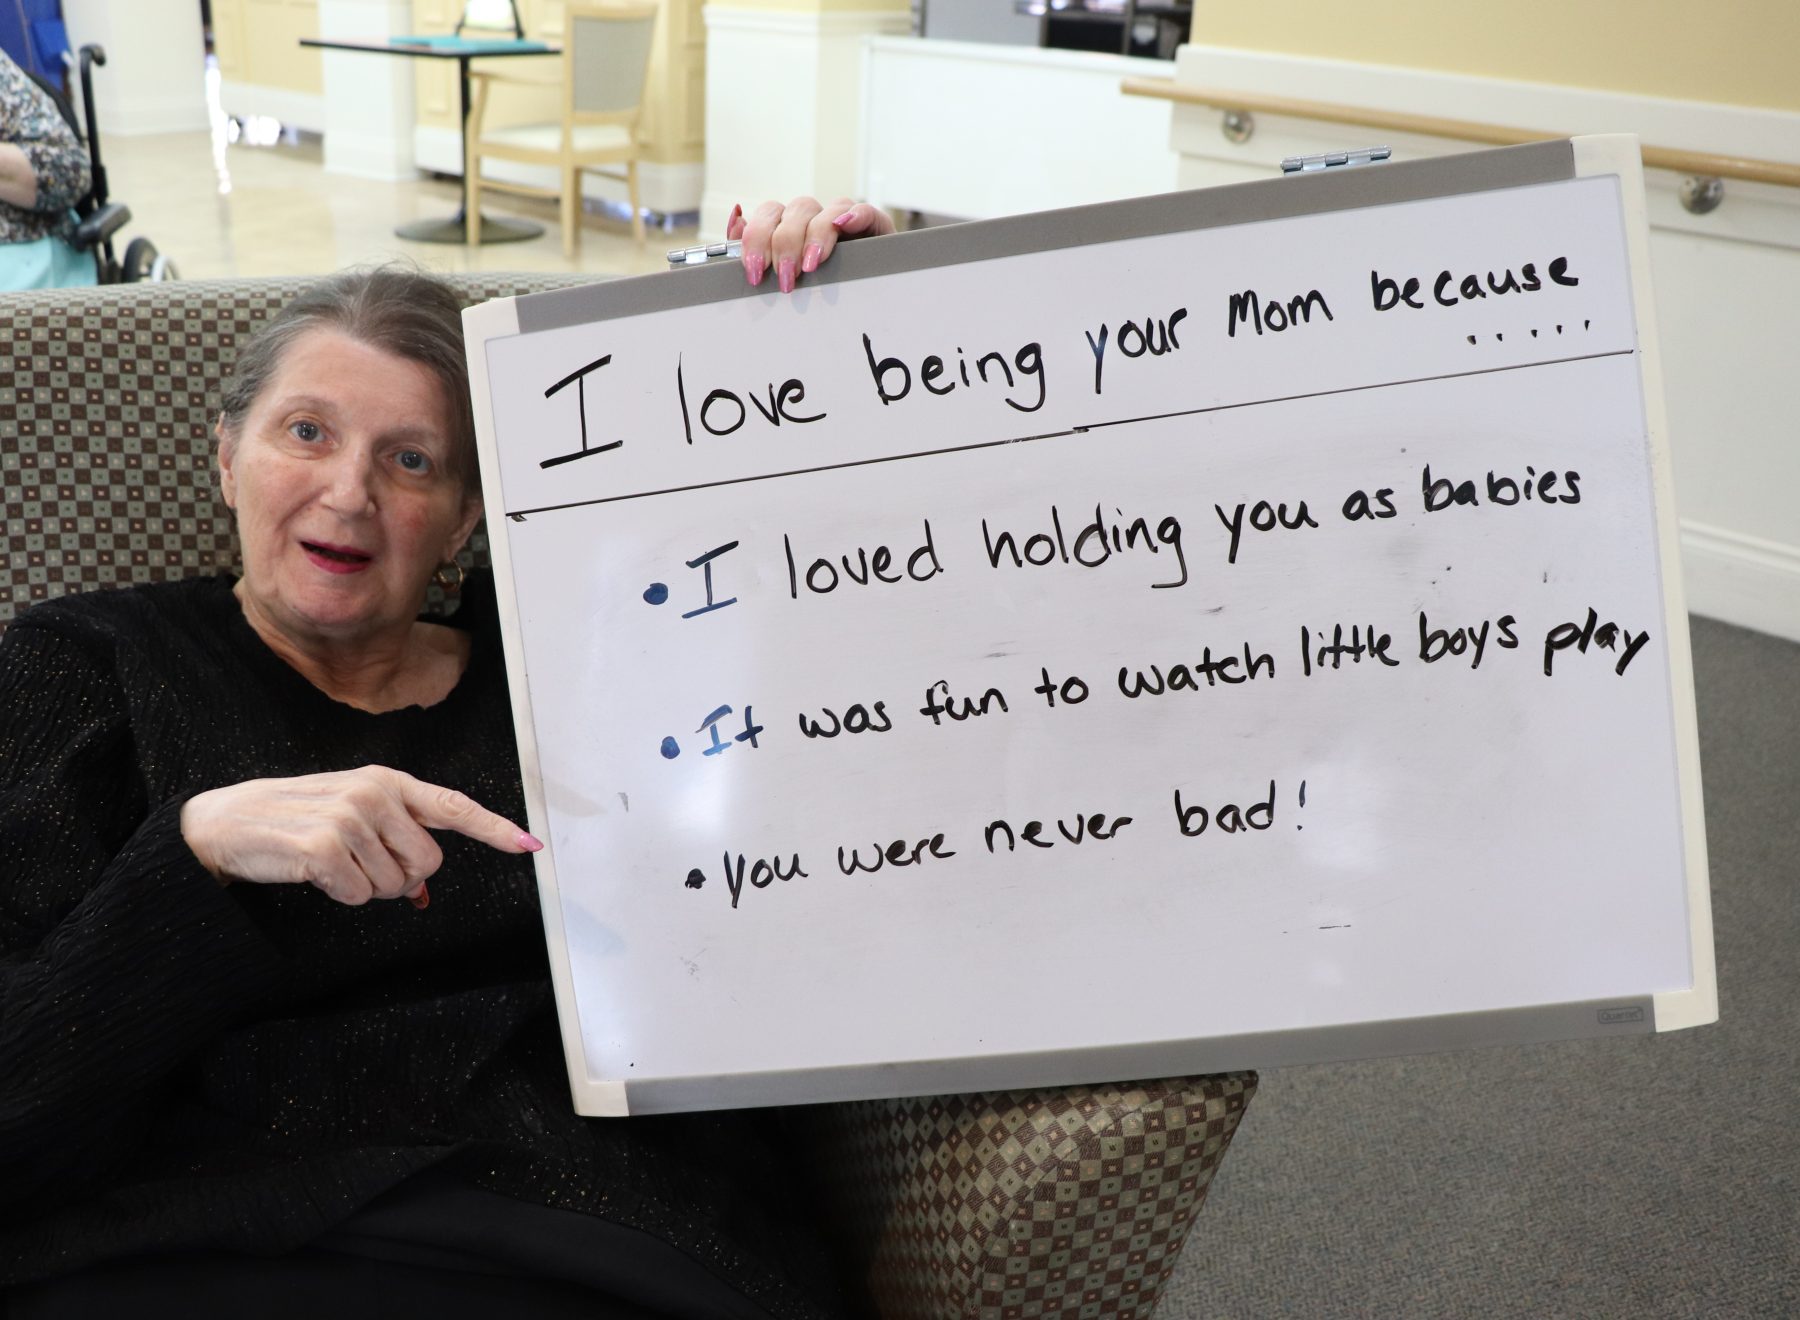 I love being your Mom because
.....
• I loved holding you as babies
• It was fun to watch little boys play
• You were never bad!
Quartet